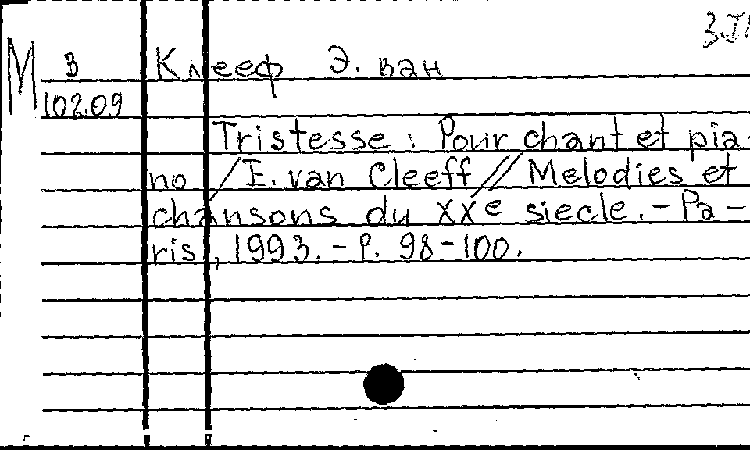 М В Клееф Э. ван
102.09
Tristesse : Pour chant et pia-
no / E. van Cleeff // Melodies et
chansons du XXe siecle. - Pa-
ris, 1993. - P. 98-100.